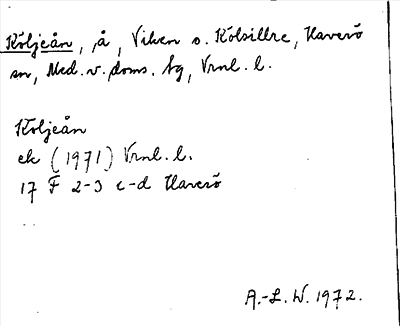 Köljeån, å, Viken o. Kölsillre, Haverö
sn, Med. v. doms. tg, Vrnl. l.
Köljeån
ek (1971) Vrnl. l.
17 F 2-3 c-d Haverö
A.-L. W. 1972.